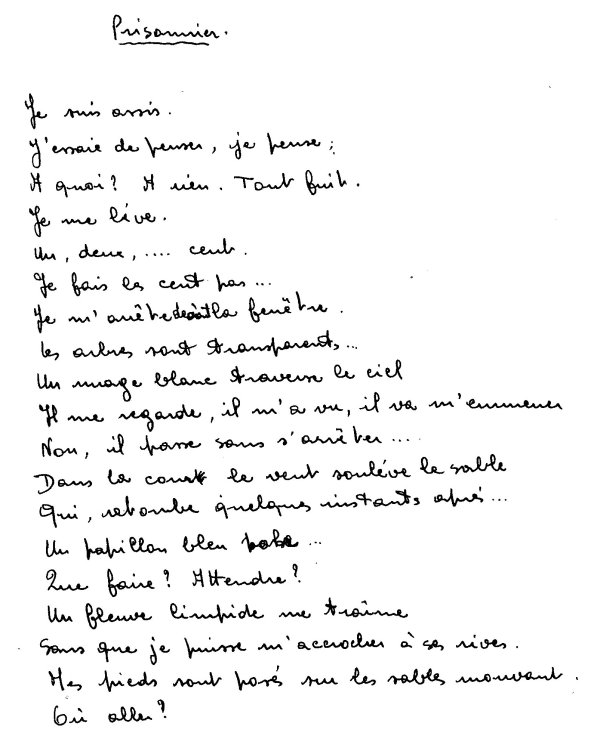 Prisonnier.
Je suis assis.
J'essaie de penser, je pense ;
A quoi ? A rien. Tout fuit.
Je me lève.
Un, deux, .... cent.
Je fais les cent pas ...
Je m'arrête devant la fenêtre.
Les arbres sont transparents...
Un nuage blanc traverse le ciel
Il me regarde, il m'a vu, il va m'emmener
Non, il passe sans s'arrêter ....
Dans la cour le vent soulève le sable
Qui, retombe quelques instants après ...
Un papillon bleu ...
Que faire ? Attendre ?
Un fleuve limpide me traîne
Sans que je puisse m'accrocher à ses rives.
Mes pieds sont posés sur les sables mouvant.
Où aller ?